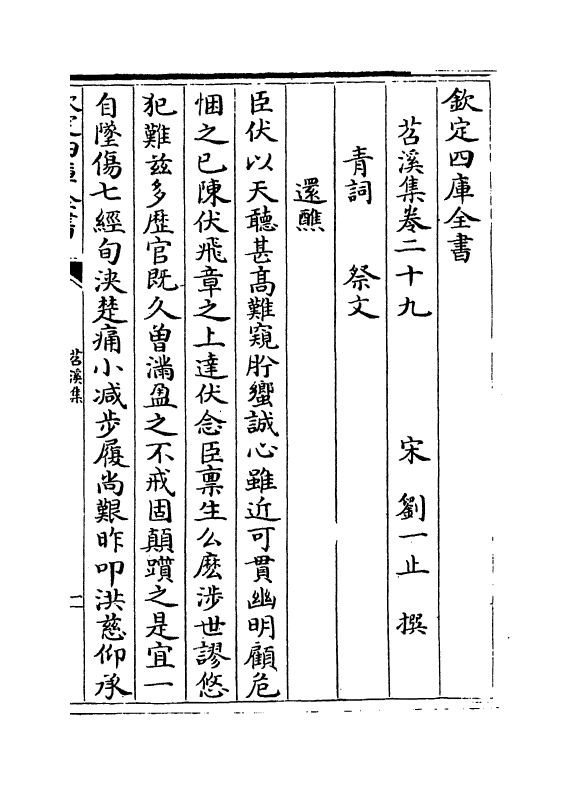 欽定四庫全書
苕溪集卷二十九　宋　劉一止　撰
青詞　祭文
還醮
臣伏以天聽甚髙難窺肸蠁誠心雖近可貫幽明顧危
悃之已陳伏飛章之上達伏念臣禀生么麽涉世謬悠
犯難兹多歴官既久曽滿盈之不戒固顛躓之是宜一
自墜傷七經旬浹楚痛小减步履尚艱昨叩洪慈仰承
欽定四庫全書
苕溪集